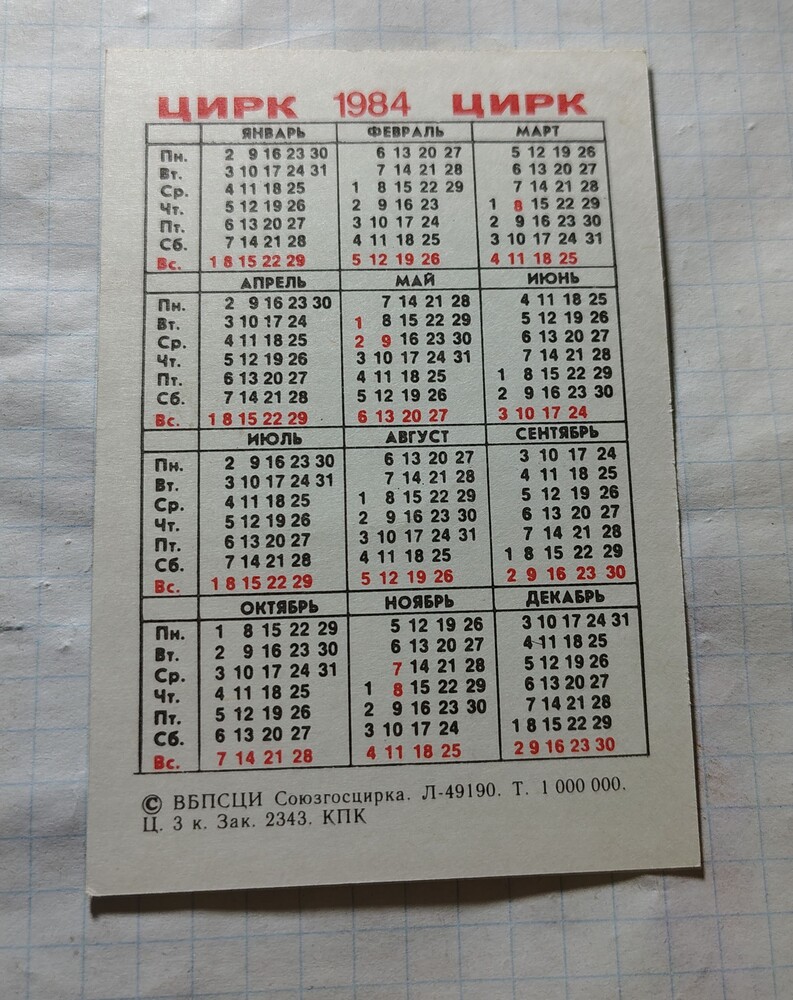 ЦИРК 1984 ЦИРК
ЯНВАРЬ ФЕВРАЛЬ МАРТ
Пн. 2 9 16 23 30 6 13 20 27 5 12 19 26
Вт. 3 10 17 24 31 7 14 21 28 6 13 20 27
Ср. 4 11 18 25 1 8 15 22 29 7 14 21 28
Чт. 5 12 19 26 2 9 16 23 1 8 15 22 29
Пт. 6 13 20 27 3 10 17 24 2 9 16 23 30
Сб. 7 14 21 28 4 11 18 25 3 10 17 24 31
Вс. 1 8 15 22 29 5 12 19 26 4 11 18 25
АПРЕЛЬ МАЙ ИЮНЬ
Пн. 2 9 16 23 30 7 14 21 28 4 11 18 25
Вт. 3 10 17 24 1 8 15 22 29 5 12 19 26
Ср. 4 11 18 25 2 9 16 23 30 6 13 20 27
Чт. 5 12 19 26 3 10 17 24 31 7 14 21 28
Пт. 6 13 20 27 4 11 18 25 1 8 15 22 29
Сб. 7 14 21 28 5 12 19 26 2 9 16 23 30
Вс. 1 8 15 22 29 6 13 20 27 3 10 17 24
ИЮЛЬ АВГУСТ СЕНТЯБРЬ
Пн. 2 9 16 23 30 6 13 20 27 3 10 17 24
Вт. 3 10 17 24 31 7 14 21 28 4 11 18 25
Ср. 4 11 18 25 1 8 15 22 29 5 12 19 26
Чт. 5 12 19 26 2 9 16 23 30 6 13 20 27
Пт. 6 13 20 27 3 10 17 24 31 7 14 21 28
Сб. 7 14 21 28 4 11 18 25 1 8 15 22 29
Вс. 1 8 15 22 29 5 12 19 26 2 9 16 23 30
ОКТЯБРЬ НОЯБРЬ ДЕКАБРЬ
Пн. 1 8 15 22 29 5 12 19 26 3 10 17 24 31
Вт. 2 9 16 23 30 6 13 20 27 4 11 18 25
Ср. 3 10 17 24 31 7 14 21 28 5 12 19 26
Чт. 4 11 18 25 1 8 15 22 29 6 13 20 27
Пт. 5 12 19 26 2 9 16 23 30 7 14 21 28
Сб. 6 13 20 27 3 10 17 24 1 8 15 22 29
Вс. 7 14 21 28 4 11 18 25 2 9 16 23 30
© ВБПСЦИ Союзгосцирка. Л-49190. Т. 1 000 000.
Ц. 3 к. Зак. 2343. КПК